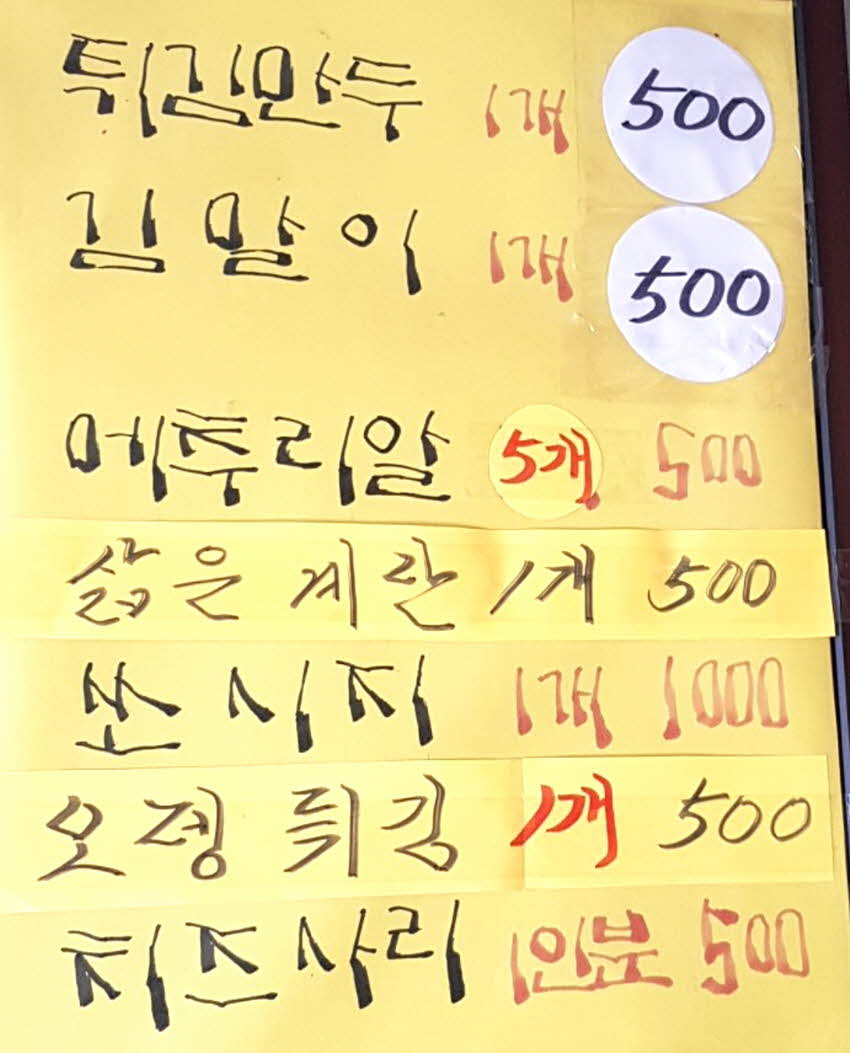 튀김만두 1개 500
김말이 1개 500
메추리알 5개 500
삶은 계란 1개 500
쏘시지 1개 1000
오뎅 튀김 1개 500
치즈사리 1인분 500